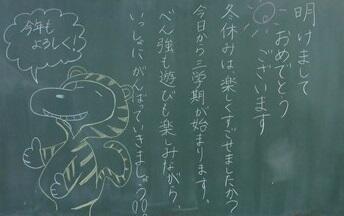 明けまして
おめでとう
ございます
冬休みは楽しくすごせましたかつ
今日から三学期が始まります。
べん強も遊びも楽しみながら、
いっしょにがんばっていきましょう!!。
今年も
よろしく!